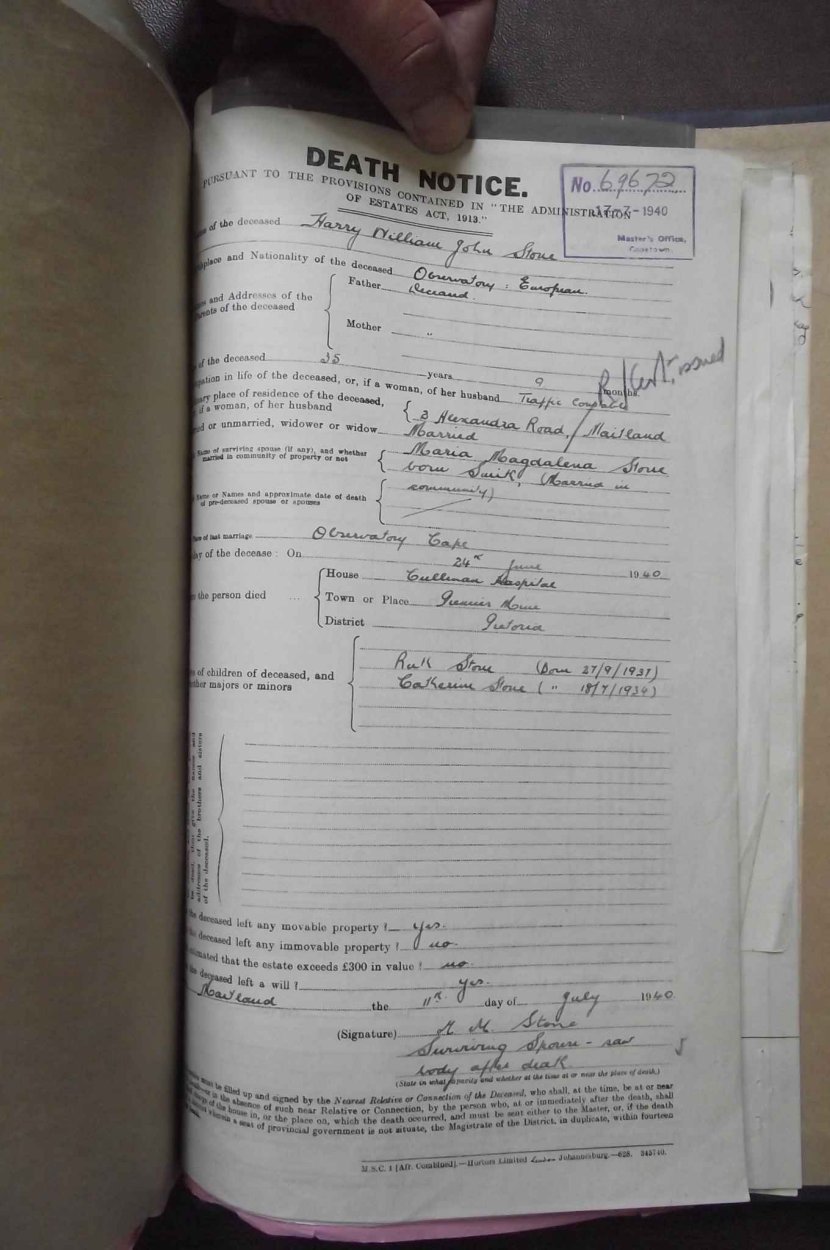 DEATH NOTICE.
PURSUANT TO THE PROVISIONS CONTAINED IN "THE ADMINISTRATION
OF ESTATES ACT, 1913."
No. 69672
17-7-1940
Master's Office,
Capetown.
of the deceased Harry William John Stone
place and Nationality of the deceased Observatory : European.
and Addresses of the
Parents of the deceased
Father Deceased.
Mother "
of the deceased 35 years 9 months.
issued
pation in life of the deceased, or, if a woman, of her husband Traffic Constable
ary place of residence of the deceased,
if a woman, of her husband 3 Alexandra Road, Maitland
ed or unmarried, widower or widow Married
Name of surviving spouse (if any), and whether
married in community of property or not
Maria Magdalena Stone
born Smit, (Married in
community)
Name or Names and approximate date of death
of pre-deceased spouse or spouses
Place of last marriage Observatory Cape
day of the decease : On 24th June 1940
the person died ...
House Cullinan Hospital
Town or Place Premier Mine
District Pretoria
es of children of deceased, and
whether majors or minors
Ruth Stone (Born 27/9/1937)
Catherine Stone ( " 18/7/1934)
be dead, then give the names and
addresses of the brothers and sisters
of the deceased.
the deceased left any movable property ? yes.
the deceased left any immovable property ? no.
estimated that the estate exceeds £300 in value ? no.
the deceased left a will ? yes.
Maitland the 11th day of July 1940
(Signature) M M Stone
Surviving Spouse - saw
body after death.
(State in what capacity and whether at the time at or near the place of death.)
must be filled up and signed by the Nearest Relative or Connection of the Deceased, who shall, at the time, be at or near
in the absence of such near Relative or Connection, by the person who, at or immediately after the death, shall
charge of the house in, or the place on, which the death occurred, and must be sent either to the Master, or, if the death
wherein a seat of provincial government is not situate, the Magistrate of the District, in duplicate, within fourteen
M.S.C. 1 [Afr. Combined].—Hortors Limited Johannesburg.—628. 343740.